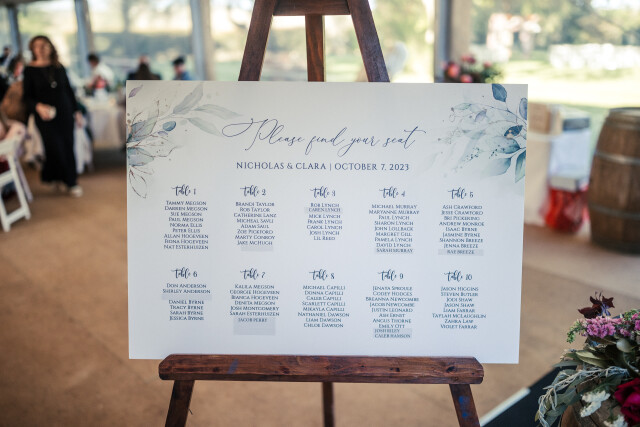 Please find your seat
NICHOLAS & CLARA | OCTOBER 7, 2023
table 1
TAMMY MEGSON
DARREN MEGSON
SUE MEGSON
PAUL MEGSON
NORMA ELLIS
PETER ELLIS
ALLAN HOGEVEEN
HEINA HOGEVEEN
NAT ESTERHUIZEN
table 2
BRANDI TAYLOR
ROB TAYLOR
CATHERINE LANZ
MICHEAL SAVILL
ADAM SAUL
ZOE PICKFORD
MARTY CONROY
JAKE MCHUGH
table 3
ROB LYNCH
CAREN LYNCH
MICK LYNCH
FRANK LYNCH
CAROL LYNCH
JOSH LYNCH
LIL REED
table 4
MICHAEL MURRAY
MARYANNE MURRAY
PAUL LYNCH
SHARON LYNCH
JOHN LOLLBACK
MARGRET GILL
PAMELA LYNCH
DAVID LYNCH
SARAH MURRAY
table 5
ASH CRAWFORD
JESSE CRAWFORD
BEC PICKERING
ANDREW MONROE
ISAAC BYRNE
JASMINE BYRNE
SHANNON BREEZE
JENNA BREEZE
RAY BREEZE
table 6
DON ANDERSON
SHIRLEY ANDERSON
DANIEL BYRNE
TRACY BYRNE
SARAH BYRNE
JESSICA BYRNE
table 7
KALILA MEGSON
GEORGIE HOGEVEEN
BIANCA HOGEVEEN
DENITA MEGSON
JOSH MONTGOMERY
SARAH ESTERHUIZEN
JACOB PERRY
table 8
MICHAEL CAPILLI
DONNA CAPILLI
CALEB CAPILLI
SCARLETT CAPILLI
MIKAYLA CAPILLI
NATHANIEL DAWSON
LIAM DAWSON
CHLOE DAWSON
table 9
JENAYA SPROULE
CODEY HODGES
BREANNA NEWCOMBE
JACOB NEWCOMBE
JUSTIN LEONARDI
ASH ERNST
ANGUS THORNE
EMILY OTT
CALEB HANSON
table 10
JASON HIGGINS
STEVEN BUTLER
JODI SHAW
JASON SHAW
LIAM FARRAR
TAYLAH MCLAUGHLIN
ZAHRA LAW
VIOLET FARRAR